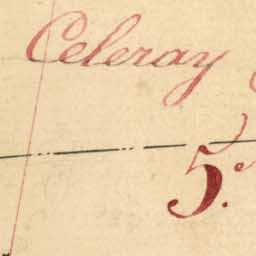 Celeray
5.